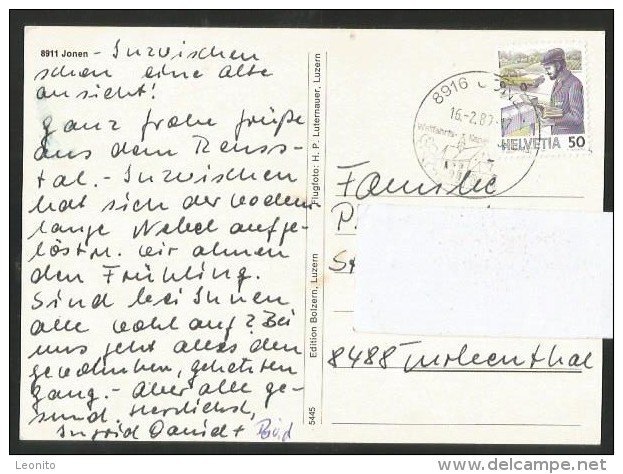 8911 Jonen - Inzwischen
schon eine alte
Ansicht!
Ganz frohe Grüße
aus dem Reuss-
tal. - Inzwischen
hat sich der
lange Nebel aufge-
löst. Wir ahnen
den Frühling.
Sind bei Ihnen
alle wohlauf? Bei
uns geht alles den
gewohnten, gehetzten
Gang. - Aber alle ge-
sund. Herzlichst,
Ingrid Daniel +
Edition Bolzern, Luzern
Flugfoto: H. P. Luternauer, Luzern
5445
8916
16.-2.8
HELVETIA 50
Familie
P
St
8488 Turbenthal
Leonito
www.delcampe.net